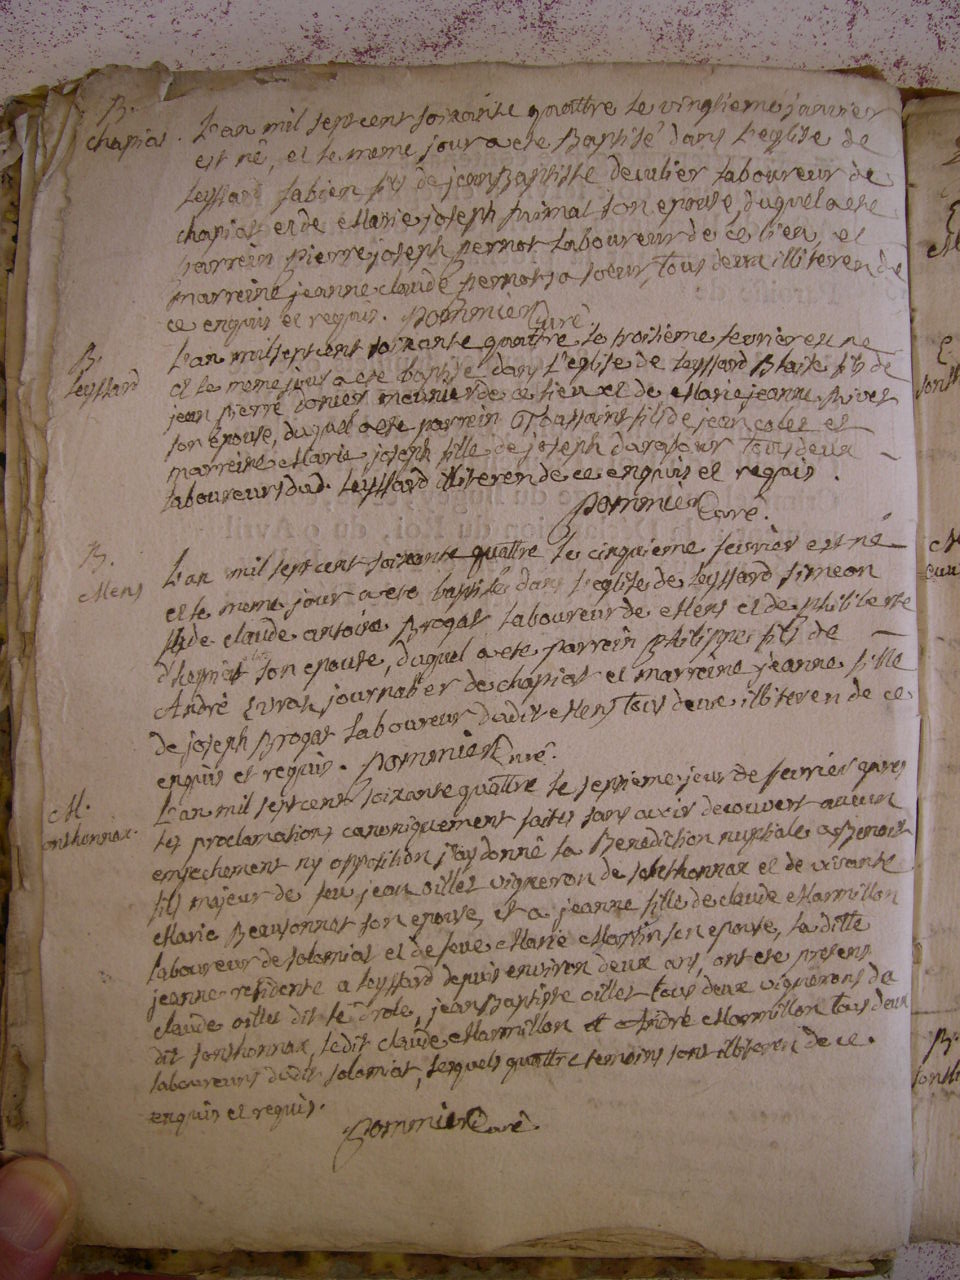 B.
chapiat.
L'an mil sept cent soixante quattre le vingtieme janvier
est né, et le meme jour a eté Baptisé dans l'eglise de
Leyssard fabien fils de jean Baptiste deculier laboureur de
chapiat et de Marie joseph son epouse, duquel a eté
parrein pierre joseph pernot laboureur de ce lieu, et
marreine jeanne claude pernot sa soeur, tous deux illiteren de
ce enquis et requis. Pommier Curé
B.
Leyssard
L'an mil sept cent soixante quattre le troisième fevrier est né
et le meme jour a eté baptisé dans l'eglise de Leyssard Blaise fils de
jean pierre monier de ce lieu et de Marie jeanne
son epouse, duquel a eté parrein Toussaint fils de jean et
marreine Marie joseph fille de joseph tous deux
laboureurs dud. Leyssard illiteren de ce enquis et requis.
Pommier Curé.
B.
Mens
L'an mil sept cent soixante quattre le cinquieme fevrier est né
et le meme jour a eté baptisé dans l'eglise de Leyssard simeon
fils de claude antoine Brogat laboureur de Mens et de philiberte
son epouse, duquel a eté parrein philippe fils de
André journalier de chapiat et marreine jeanne fille
de joseph Brogat laboureur dudit Mens tous deux illiteren de ce
enquis et requis. Pommier Curé.
M.
onthonnax.
L'an mil sept cent soixante quattre le septieme jour de fevrier apres
les proclamations canoniquement faites sans avoir decouvert aucun
empechement ny opposition j'ay donné la Benediction nuptiale a Benoit
fils majeur de feu jean oillet vigneron de sonthonnax et de vivante
Marie Beausonnat son epouse, et a jeanne fille de claude Marmillon
laboureur de solomiat et de feue Marie Martin son epouse, la ditte
jeanne residente a Leyssard depuis environ deux ans, ont eté presens
claude oillet dit le drole, jean Baptiste oillet tous deux vignerons de
dit sonthonnax, ledit claude Marmillon et André Marmillon tous deux
laboureurs dudit solomiat, lesquels quattre temoins sont illiteren de ce.
enquis et requis.
Pommier Curé.